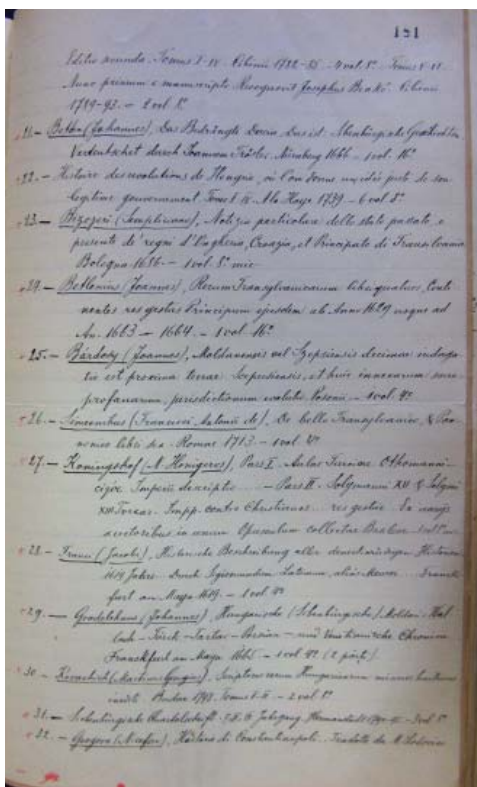 181
Editio secunda. Tomus I-IV. Cibinii 1782-85 - 4 vol. 8º. Tomus V-VI.
Nunc primum e manuscripto Recognovit Josephus Benkö. Cibinii
1789-93. - 2 vol. 8º
21.- Bethlen (Johannes), Das Bedrängte Dacia. Das ist: Siebenbürgische Geschichten
Verteutschet durch Joannem Tröster. Nürnberg 1666 - 1 vol. 16º
22.- Histoire des révolutions de Hongrie, où l'on donne une idée juste de son
légitime gouvernement. Tome I-VI. A la Haye 1739 - 6 vol. 8º
23.- Bizozeri (Simpliciano), Notizia particolare dello stato passato, e
presente de' regni d'Ungheria, Croazia, et Principato di Transilvania
Bologna 1686 - 1 vol. 8º mic
24.- Betlenius (Joannes), Rerum Transylvanicarum libri quatuor, Conti-
nentes res gestas Principum ejusdem ab Anno 1629 usque ad
An. 1663 - 1664. - 1 vol. 16º
25.- Bárdosy (Joannes), Moldavensis vel Szepsiensis decimae indaga-
tio est proxima terrae Scepusiensis, et huic innexarum sacro
profanarum, jurisdictionum evolutio. Posonii - 1 vol. 4º
26.- Simonibus (Francisci Antonii de), De bello Transylvanico, & Pan-
nonico libri sex. Romae 1713. - 1 vol. 4º
27.- Koningshof (N. Honigerus), Pars I. Aulae Turcicae, Othomanni-
cique Imperii descriptio - Pars II. Solymanni XII & Selymi
XIII Turcar. Impp. contra Christianos res gestae. Ex variis
auctoribus in unum Opusculum collectae Basileae
28.- Franci (Jacobi), Historische Beschreibung aller denckwürdigen Historien
1619 Jahre. Durch Sigismundum Latomum, alias Meurer. Franck-
furt am Mayn 1619. - 1 vol. 4º
29.- Gradelehnus (Johannes), Hungarische / Siebenbürgische / Moldau - Wal-
lach - Türck - Tartar - Persian - und Venetianische Chronica
Franckfurt am Mayn 1665 - 1 vol. 4º (2 părţi)
30- Kovachich (Martinus Georgius), Scriptores rerum Hungaricarum minores hactenus
inediti. Budae 1798. Tomus I-II. - 2 vol. 8º
31.- Siebenbürgische Quartalschrift. Jahrgang. Hermannstadt
32.- Gregora (Nicefor), Historia di Constantinopoli. Tradotta da M. Lodovico